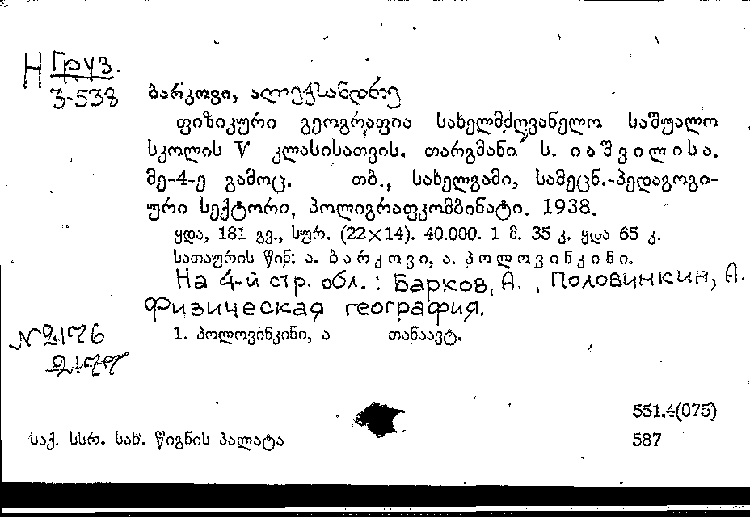 Н Груз.
3-538
ბარკოვი, ალექსანდრე
ფიზიკური გეოგრაფია სახელმძღვანელო საშუალო
სკოლის V კლასისათვის. თარგმანი ს. იაშვილისა.
მე-4-ე გამოც. თბ., სახელგამი, სამეცნ.-პედაგოგი-
ური სექტორი, პოლიგრაფკომბინატი. 1938.
ყდა, 181 გვ., სურ. (22×14). 40.000. 1 მ. 35 კ. ყდა 65 კ.
სათაურის წინ: ა. ბარკოვი, ა. პოლოვინკინი.
На 4-й стр. обл.: Барков, А., Половинкин, А.
Физическая география.
1. პოლოვინკინი, ა თანაავტ.
№ 2176
2177
551.4(075)
საქ. სსრ. სახ. წიგნის პალატა 587